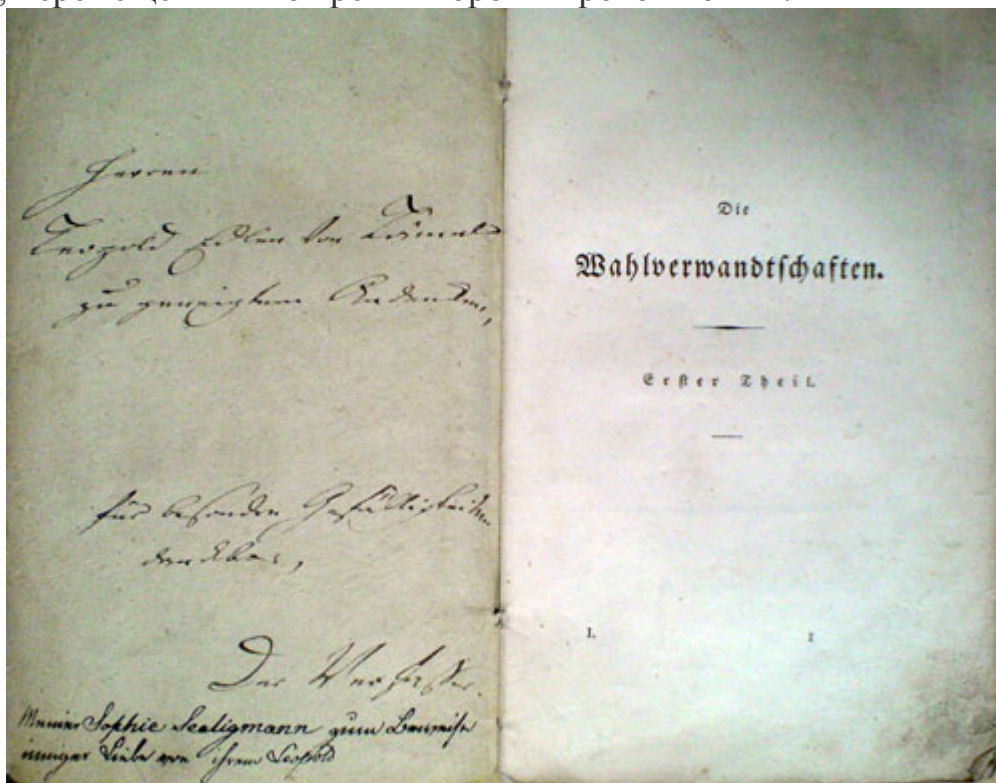 Herren
Leopold Edlen von Lämel
zu geneigtem Andenken,
für besondre Gefälligkeiten
dankbar,
Der Verfasser.
Meiner Sophie Seeligmann zum Beweise
inniger Liebe von ihrem Leopold
Die
Wahlverwandtschaften.
Erster Theil.
I. 1